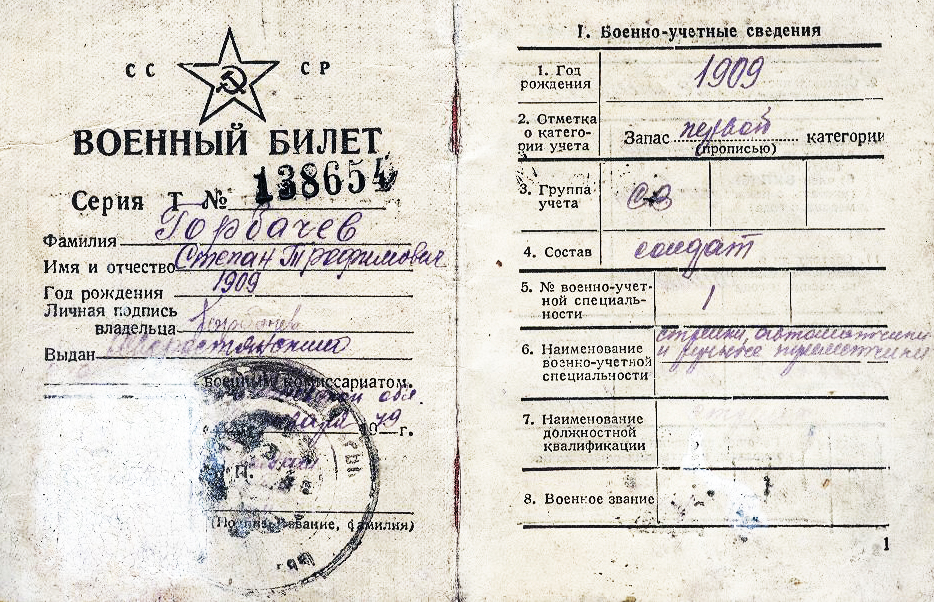 СС СР
ВОЕННЫЙ БИЛЕТ
Серия Т № 138654
Фамилия Горбачев
Имя и отчество Степан Трофимович
Год рождения 1909
Личная подпись
владельца
Выдан
военным комиссариатом.
обл.
49 г.
(Подпись, звание, фамилия)
I. Военно-учетные сведения
1. Год
рождения
1909
2. Отметка
о катего-
рии учета
Запас первой категории
(прописью)
3. Группа
учета
СА
4. Состав солдат
5. № военно-учет-
ной специаль-
ности
1
6. Наименование
военно-учетной
специальности
стрелки, автоматчики
и ручные пулеметчики
7. Наименование
должностной
квалификации
8. Военное звание
1